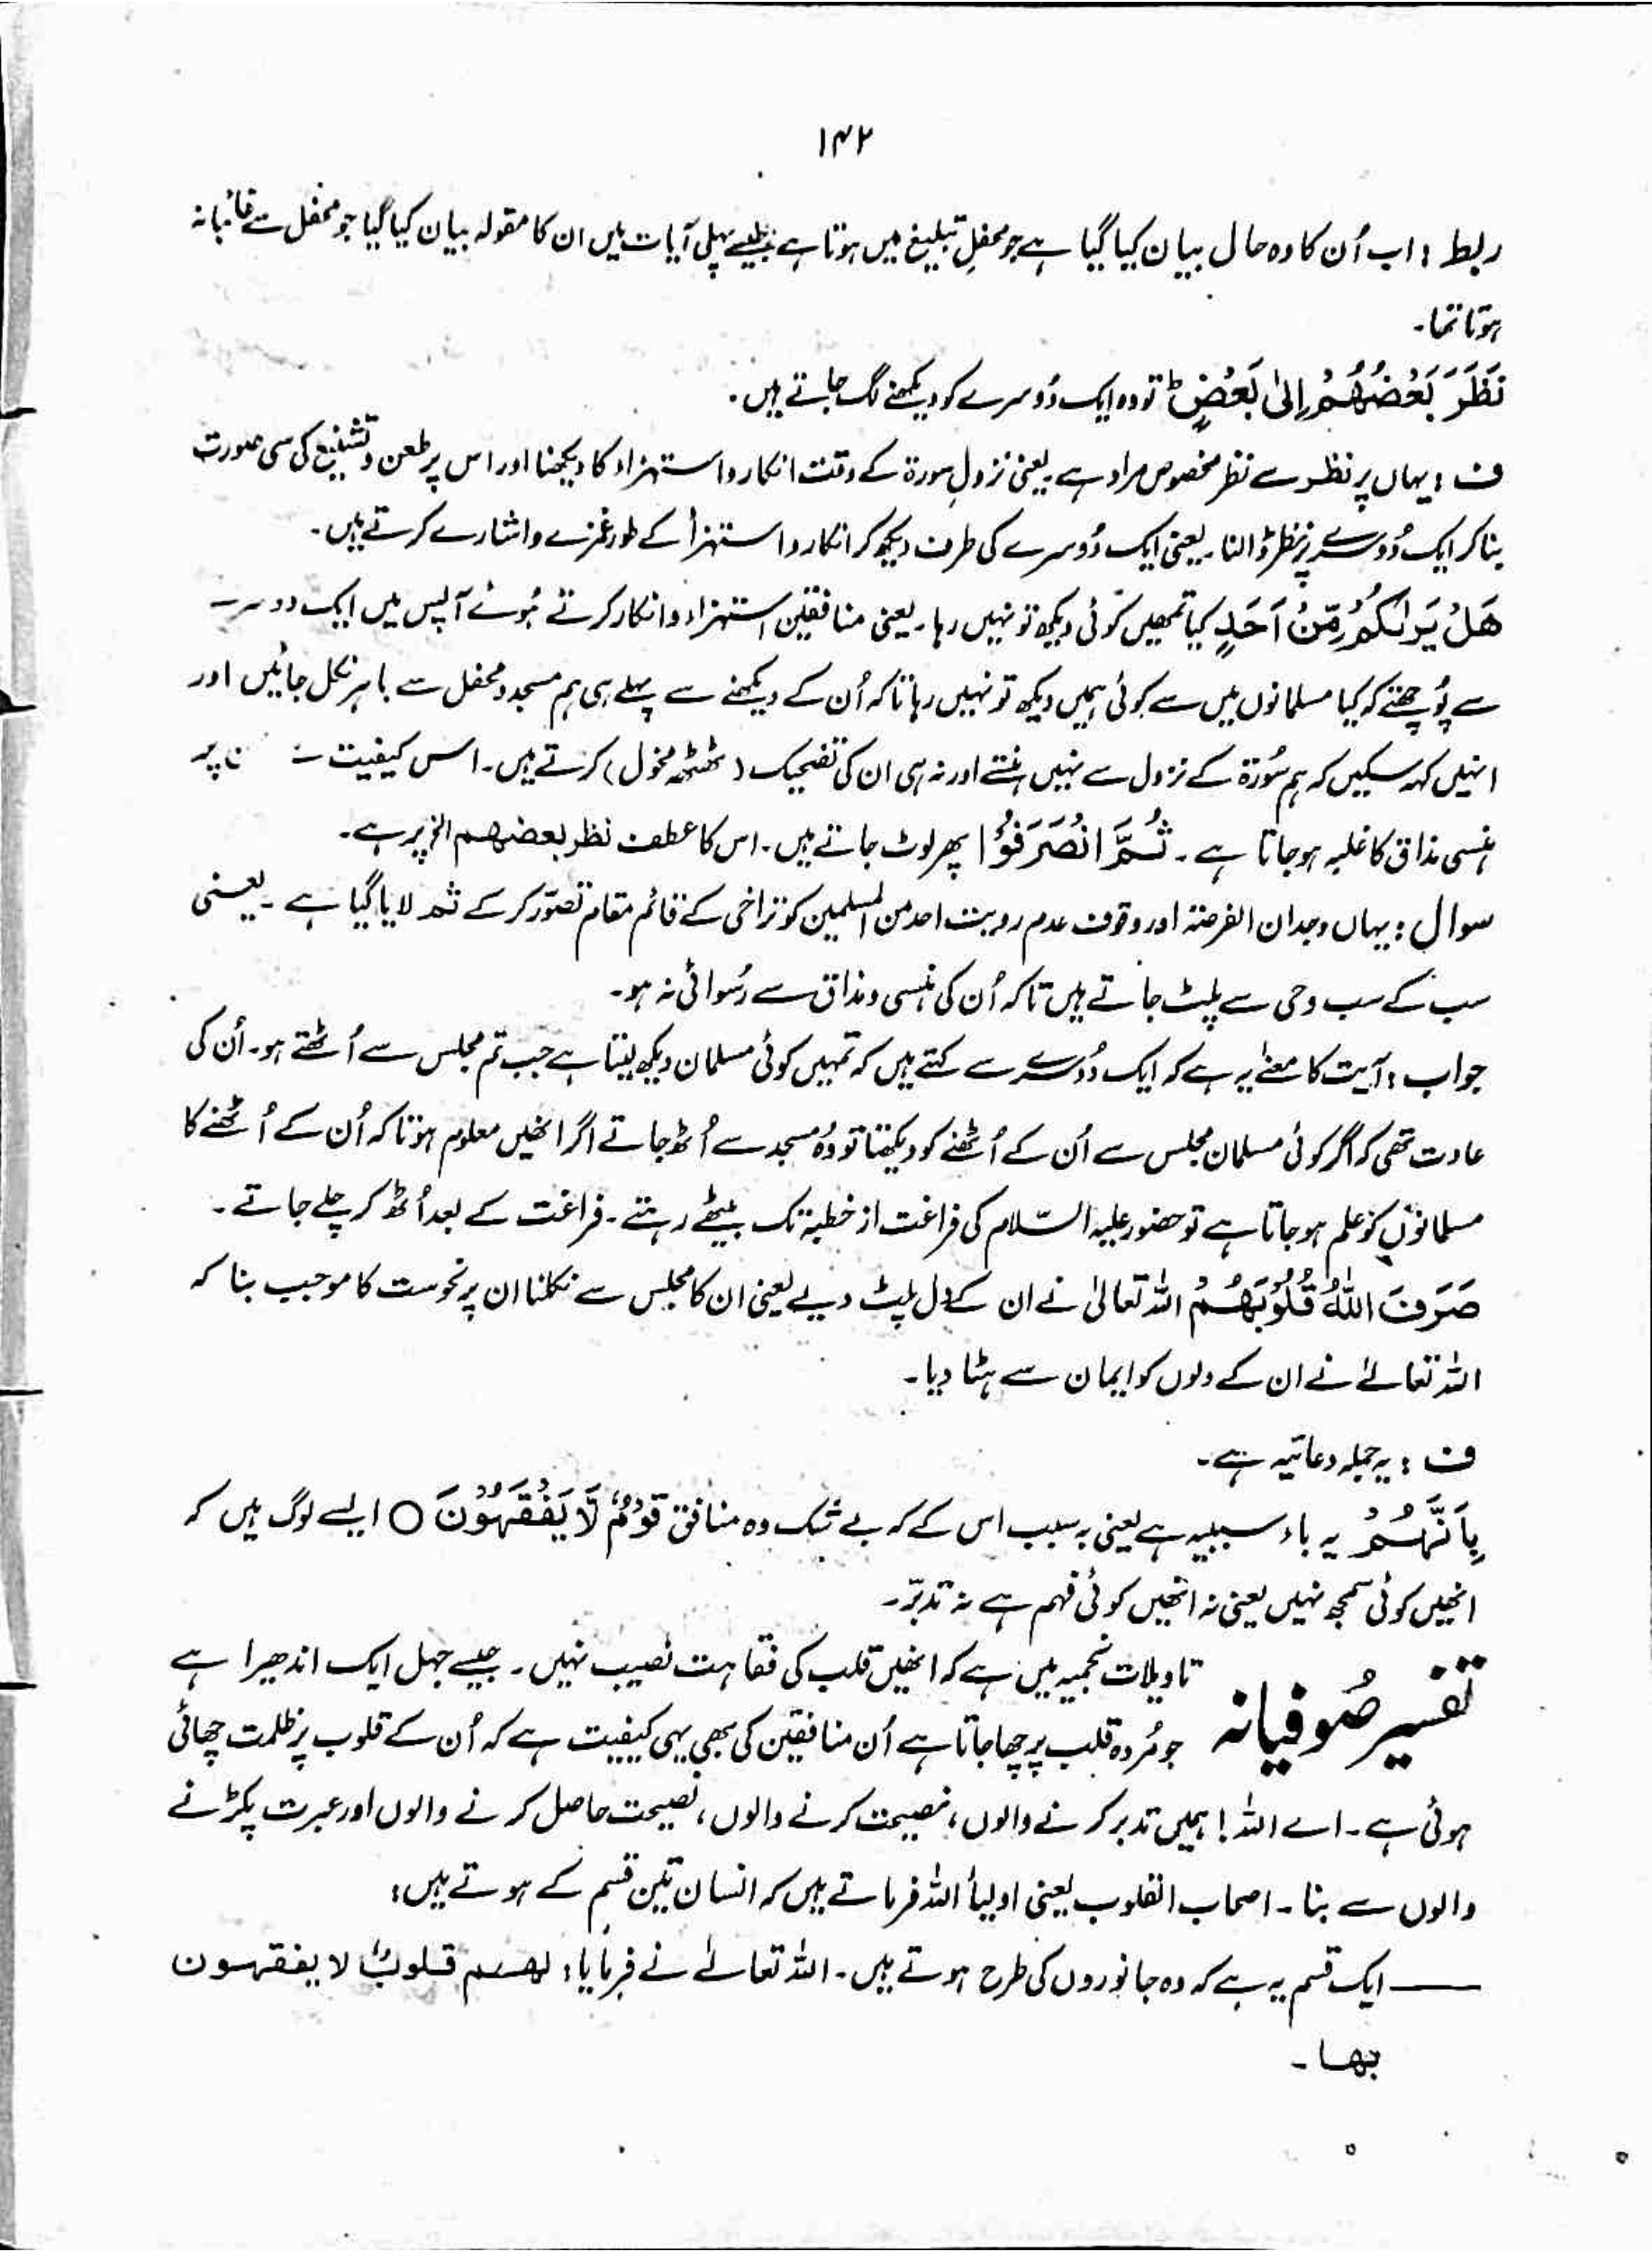 ۱۴۲
ربط : اب اُن کا وہ حال بیان کیا گیا ہے جو محفلِ تبلیغ میں ہوتا ہے جیسے پہلی آیات میں ان کا مقولہ بیان کیا گیا جو محفل سے غائبانہ
ہوتا تھا۔
نَظَرَ بَعْضُهُمْ اِلٰی بَعْضٍ ؕ تو وہ ایک دُوسرے کو دیکھنے لگ جاتے ہیں۔
ف : یہاں پر نظر سے نظر مخصوص مراد ہے یعنی نزولِ سورۃ کے وقت انکار و استہزاء کا دیکھنا اور اس پر طعن و تشنیع کی سی صورت
بنا کر ایک دُوسرے پر نظر ڈالنا۔ یعنی ایک دُوسرے کی طرف دیکھ کر انکار و استہزأ کے طور غمزے و اشارے کرتے ہیں۔
هَلْ یَرٰىكُمْ مِّنْ اَحَدٍ کیا تمھیں کوئی دیکھ تو نہیں رہا۔ یعنی منافقین استہزاء و انکار کرتے ہُوئے آپس میں ایک دوسرے
سے پُوچھتے کہ کیا مسلمانوں میں سے کوئی ہمیں دیکھ تو نہیں رہا تاکہ اُن کے دیکھنے سے پہلے ہی ہم مسجد و محفل سے باہر نکل جائیں اور
انہیں کہہ سکیں کہ ہم سُورۃ کے نزول سے نہیں ہنستے اور نہ ہی ان کی تضحیک (ٹھٹھہ مخول) کرتے ہیں۔ اس کیفیت پر
ہنسی مذاق کا غلبہ ہو جاتا ہے۔ ثُمَّ انْصَرَفُوْا پھر لوٹ جاتے ہیں۔ اس کا عطف نظر بعضهم الخ پر ہے۔
سوال : یہاں وجدان الفرصۃ اور وقوف عدم رویت احد من المسلمین کو تراخی کے قائم مقام تصوّر کر کے ثم لایا گیا ہے۔ یعنی
سب کے سب وحی سے پلٹ جاتے ہیں تاکہ اُن کی ہنسی و مذاق سے رُسوائی نہ ہو۔
جواب : آیت کا معنٰے یہ ہے کہ ایک دُوسرے سے کہتے ہیں کہ تمہیں کوئی مسلمان دیکھ لیتا ہے جب تم مجلس سے اُٹھتے ہو۔ اُن کی
عادت تھی کہ اگر کوئی مسلمان مجلس سے اُن کے اُٹھنے کو دیکھتا تو وُہ مسجد سے اُٹھ جاتے اگر انھیں معلوم ہوتا کہ اُن کے اُٹھنے کا
مسلمانوں کو علم ہو جاتا ہے تو حضور علیہ السّلام کی فراغت از خطبہ تک بیٹھے رہتے۔ فراغت کے بعد اُٹھ کر چلے جاتے۔
صَرَفَ اللّٰهُ قُلُوْبَهُمْ اللہ تعالیٰ نے ان کے دل پلٹ دیے یعنی ان کا مجلس سے نکلنا ان پر نحوست کا موجب بنا کہ
اللہ تعالےٰ نے ان کے دلوں کو ایمان سے ہٹا دیا۔
ف : یہ جملہ دعائیہ ہے۔
بِاَنَّهُمْ یہ باء سببیہ ہے یعنی بہ سبب اس کے کہ بے شک وہ منافق قَوْمٌ لَّا یَفْقَهُوْنَ ○ ایسے لوگ ہیں کہ
انھیں کوئی سمجھ نہیں یعنی نہ انھیں کوئی فہم ہے نہ تدبّر۔
تفسیر صُوفیانہ
تاویلات نجمیہ میں ہے کہ انھیں قلب کی فقاہت نصیب نہیں۔ جیسے جہل ایک اندھیرا ہے
جو مُردہ قلب پر چھا جاتا ہے اُن منافقین کی بھی یہی کیفیت ہے کہ اُن کے قلوب پر ظلمت چھائی
ہوئی ہے۔ اے اللہ! ہمیں تدبر کرنے والوں، نصیحت کرنے والوں، نصیحت حاصل کرنے والوں اور عبرت پکڑنے
والوں سے بنا۔ اصحاب القلوب یعنی اولیأ اللہ فرماتے ہیں کہ انسان تین قسم کے ہوتے ہیں:
—— ایک قسم یہ ہے کہ وہ جانوروں کی طرح ہوتے ہیں۔ اللہ تعالےٰ نے فرمایا: لهم قلوبٌ لا یفقهون
بها۔